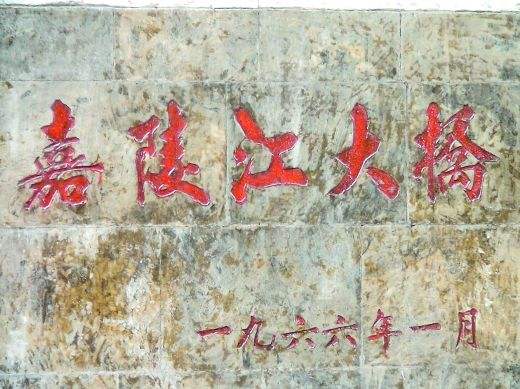 嘉陵江大橋
一九六六年一月